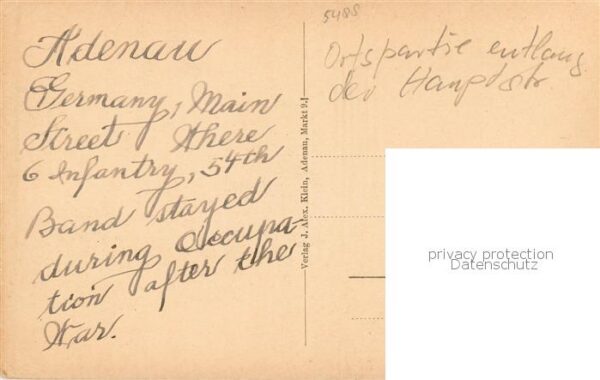 Adenau
Germany, Main
Street Where
6 Infantry, 54th
Band stayed
during Occupa-
tion after the
War.
5488
Ortspartie entlang
der Hauptstr.
Verlag J. Alex. Klein, Adenau, Markt 9.
privacy protection
Datenschutz